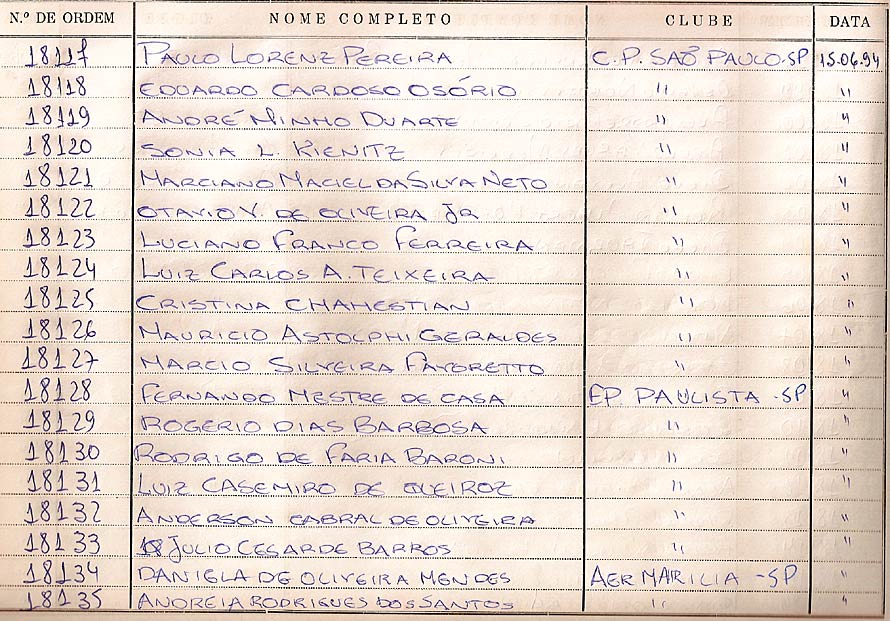 N.º DE ORDEM NOME COMPLETO CLUBE DATA
18117 PAULO LORENZ PEREIRA C.P. SAÕ PAULO-SP 15.06.94
18118 EDUARDO CARDOSO OSÓRIO " "
18119 ANDRÉ NINHO DUARTE " "
18120 SONIA L. KIENITZ " "
18121 MARCIANO MACIEL DA SILVA NETO " "
18122 OTAVIO V. DE OLIVEIRA JR " "
18123 LUCIANO FRANCO FERREIRA " "
18124 LUIZ CARLOS A. TEIXEIRA " "
18125 CRISTINA CHAMESTIAN " "
18126 MAURICIO ASTOLPHI GERALDES " "
18127 MARCIO SILVEIRA FAVORETTO " "
18128 FERNANDO MESTRE DE CASA EP. PAULISTA -SP "
18129 ROGERIO DIAS BARBOSA " "
18130 RODRIGO DE FARIA BARONI " "
18131 LUIZ CASEMIRO DE QUEIROZ " "
18132 ANDERSON CABRAL DE OLIVEIRA " "
18133 JULIO CESAR DE BARROS " "
18134 DANIELA DE OLIVEIRA MENDES AER MARILIA -SP "
18135 ANDREIA RODRIGUES DOS SANTOS " "